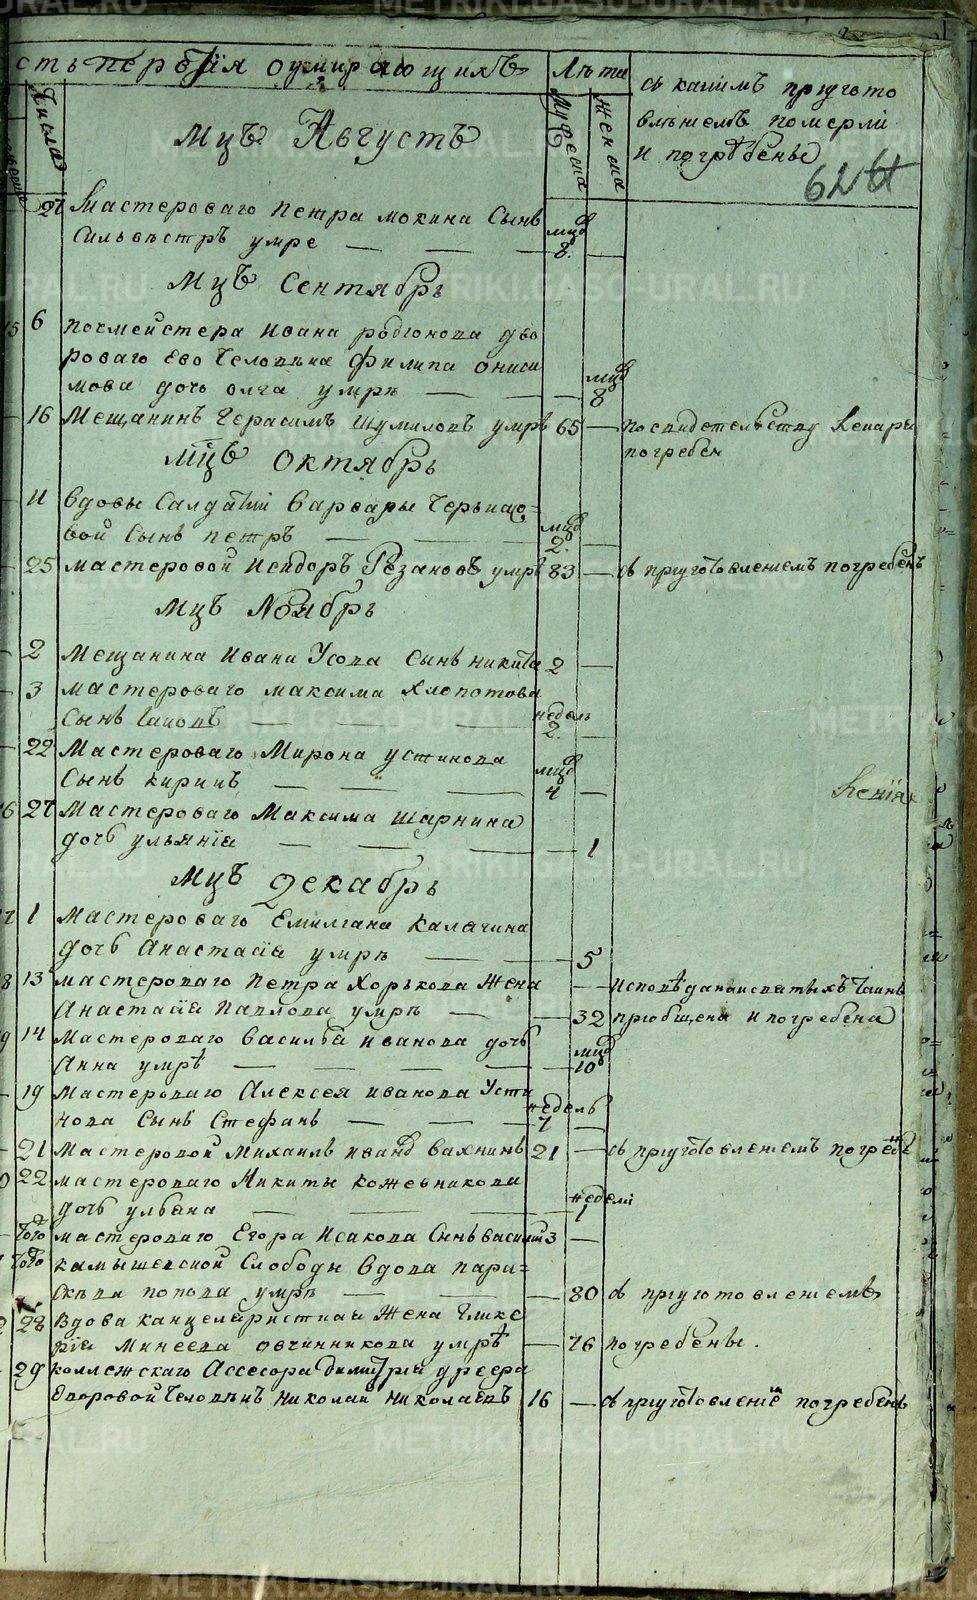 сть первая оумирающихъ
Лѣта
Числа
Мужеска
Женска
съ какимъ пріугото
влѣніемъ померли
и погрѣбены
62
Мцъ Августъ
21 Мастероваго Петра Мокина Сынъ
Сильвѣстръ умре мцъ 8.
Мцъ Сентябрь
15 6 почмейстера Ивана родіонова дво
роваго Ево Человѣка Филипа Ониси
мова дочь олга умрѣ мцъ 8
16 Мещанинъ Герасимъ Шумиловъ умрѣ 65 по свидетельству Лекаря
погребен
Мцъ Октябрь
11 Вдовы Салдатки Варвары Черьнао=
вой Сынъ Петръ мцъ 2.
25 мастеровой Исидоръ Рѣзановъ умрѣ 83 съ пріуготовленіемъ погребенъ
Мцъ Ноябрь
2 Мещанина Ивана Усова сынъ никита 2
3 мастероваго максима Хлопотова
Сынъ Іаковъ недель 2.
22 Мастероваго Мирона устинова
Сынъ кирикъ мцъ 4
16 27 Мастероваго Максима шарнина
дочь ульянія 1
Мцъ Декабрь
17 1 Мастероваго Емилиана Калачина
дочь Анастасія умрѣ 5
18 13 мастероваго Петра Хорькова Жена
Анастасія Павлова умрѣ 32
исповѣдана и святыхъ Таинъ
пріобщена и погребена
19 14 Мастероваго Василья иванова дочь
Анна умрѣ мцъ 10
19 Мастероваго Алексея иванова Усти
нова Сынъ Стефанъ недель 7
21 Мастеровой Михаилъ Иванъ Вахнинъ 21 съ пріуготовленіемъ погребѣнъ
22 мастероваго Никиты кожевникова
дочь ульяна недели 1
того мастероваго Егора Исакова Сынъ василий 3
того камышевской Слободы Вдова пара=
скѣва попова умрѣ 80 съ пріуготовленіемъ
28 вдова канцеляристкая Жена Глике
рія Минеева овчинникова умрѣ 76 погребены.
29 коллежскаго Ассесора Димитрія
дворовой Человѣкъ Николай Николаевъ 16 съ пріуготовленіемъ погребенъ